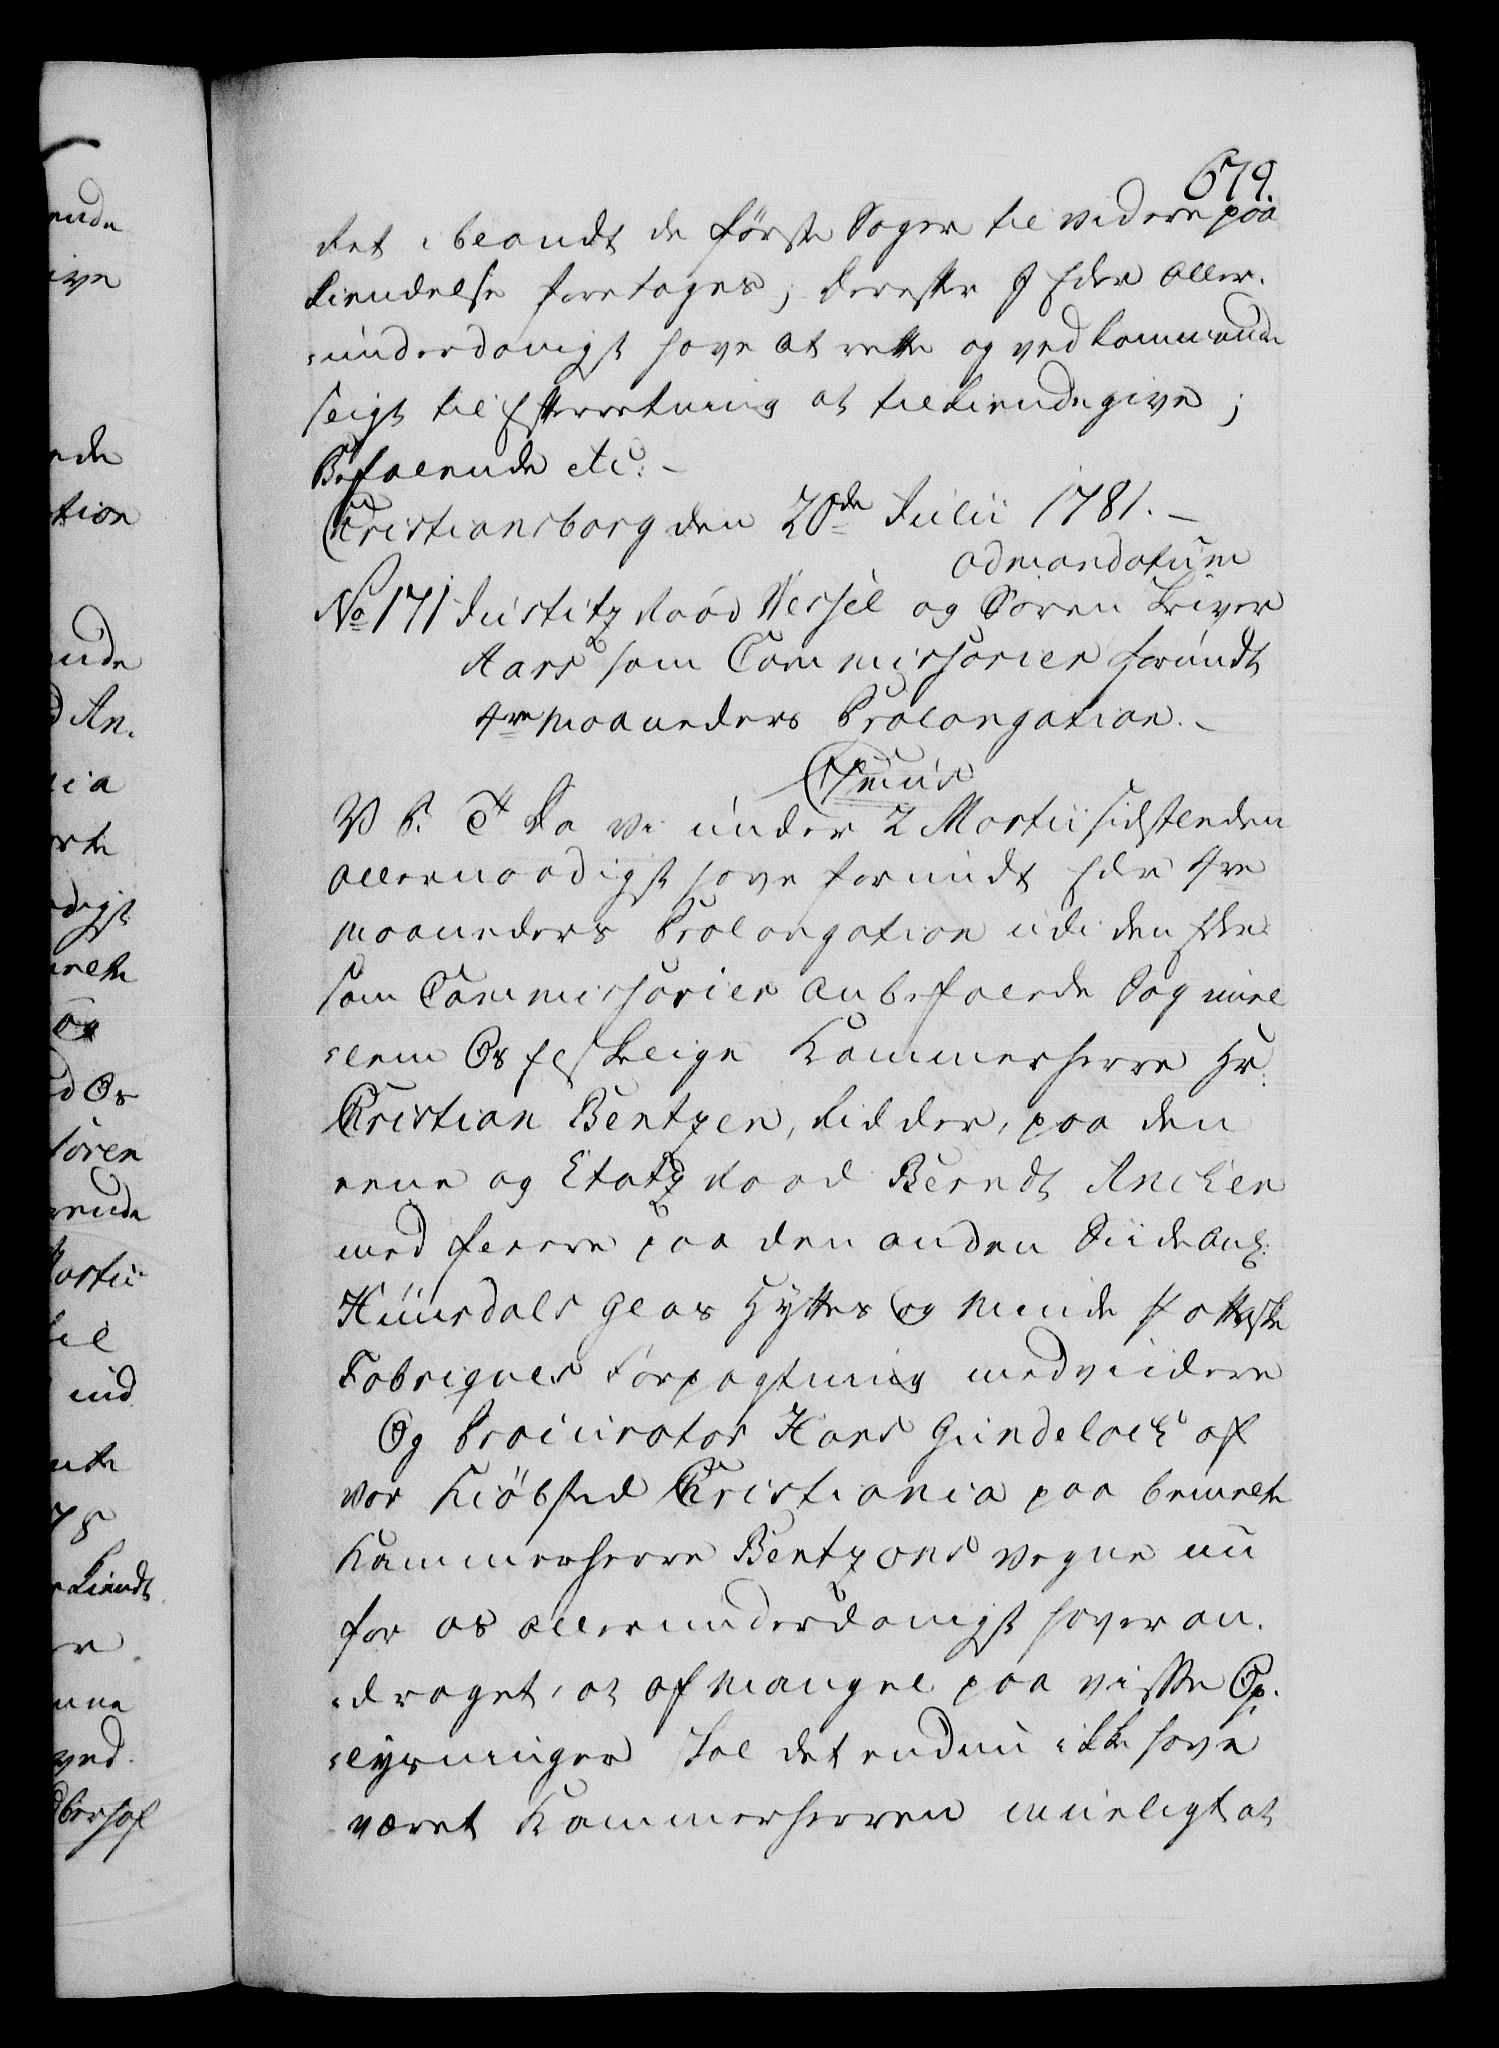 679.
det iblandt de förste Sager til videre paa
kiendelse foretages; derefter I Eder aller-
underdanigst have at rette og vedkommende
seigt til Efterretning at tilkiendegive;
Befalende etc:
Christiansborg den 20de Julii 1781.
ad mandatum
No 171 Justitz Raad Wessel og Soren skriver
Aars som Commissarier forundt
4re Maaneders Prolongation.
V S. Da vi under 2 Martii sidstleden
allernaadigst have forundt Eder 4re
Maaneders Prolongation udi den Eder
som Commissarier anbefalede Sag mel
lem Os Elskelige Kammerherre Hr:
Christian Bentzen, Ridder, paa den
eene og Etatz Raad Berndt Ancher
med fleere paa den anden Siide Ang:
Huursdals Glas Hyttes og Minde Pottaske
Fabriques Forpagtning med viidere
Og Procurator Hans Gundelach af
vor Kiöbsted Christiania paa bemelte
Kammerherre Bentzons vegne nu
for os allerunderdanigst haver an-
draget, at af Mangel paa visse Op-
lysninger skal det endnu ikke have
været Kammerherren mueligt at